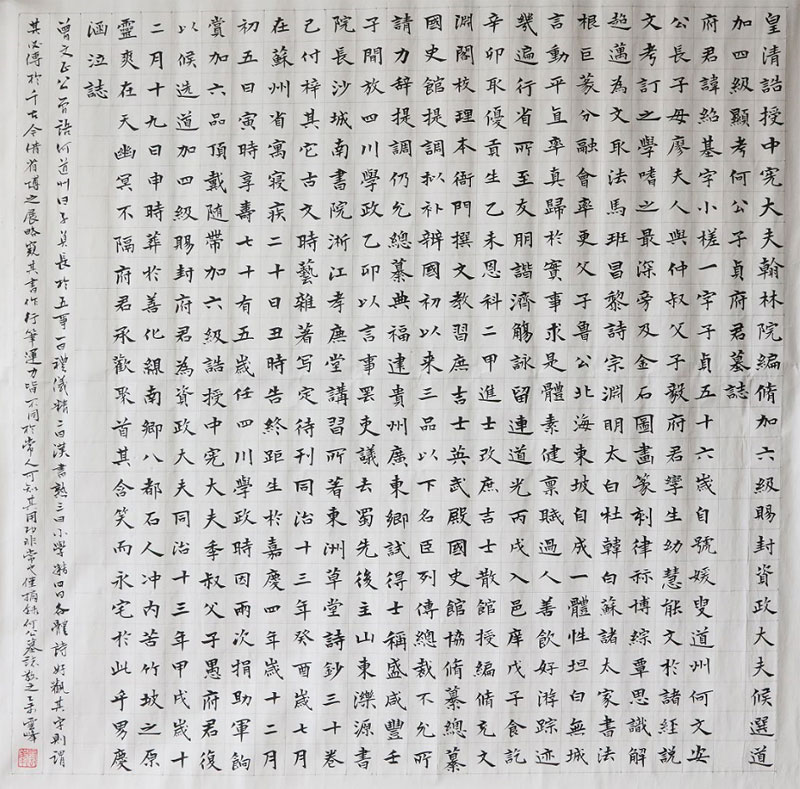 皇清誥授中憲大夫翰林院編脩加六級賜封資政大夫候選道
加四級顯考何公子貞府君墓誌
府君諱紹基字小槎一字子貞五十六歲自號媛叟道州何文安
公長子母廖夫人與仲叔父子毅府君孿生幼慧能文於諸經說
文考訂之學嗜之最深旁及金石圖畫篆刻律祘博綜覃思識解
超邁為文取法馬班昌黎詩宗淵明太白杜韓白蘇諸太家書法
根巨篆分融會率更父子魯公北海東坡自成一體性坦白無城
言動平直率真歸於實事求是體素健稟賦過人善飲好游踪迹
幾遍行省所至友朋諧濟觴詠留連道光丙戌入邑庠戊子食訖
辛卯取優貢生乙未恩科二甲進士改庶吉士散館授編脩充文
淵閣校理本衙門撰文教習庶吉士英武殿國史館協脩纂總纂
國史館提調拟补辨國初以來三品以下名臣列傳總裁不允所
請力辞提調仍允總纂典福建貴州廣東鄉試得士稱盛咸豐壬
子間放四川學政乙卯以言事罷吏議去蜀先後主山東濼源書
院長沙城南書院浙江孝廉堂講習所著東洲草堂詩鈔三十卷
已付梓其它古文時藝雜著写定待刊同治十三年癸酉歲七月
在蘇州省寓寢疾二十日丑時告終距生於嘉慶四年歲十二月
初五日寅時享壽七十有五歲任四川學政時因兩次捐助軍餉
賞加六品頂戴隨帶加六級誥授中憲大夫季叔父子愚府君復
以候选道加四級賜封府君為資政大夫同治十三年甲戌歲十
二月十九日申時葬於善化縣南鄉八都石人冲內苦竹坡之原
靈爽在天幽冥不隔府君承歡聚首其含笑而永宅於此乎男慶
涵泣誌
曾文正公嘗語何道州曰子貞長於五事一曰禮儀精二曰漢書熟三曰小學精四曰各體詩好觀其字則謂
其必傳於千古今借省博之展略窺其書作行筆運力皆不同於常人可知其用功非常也僅摘錄何公墓誌